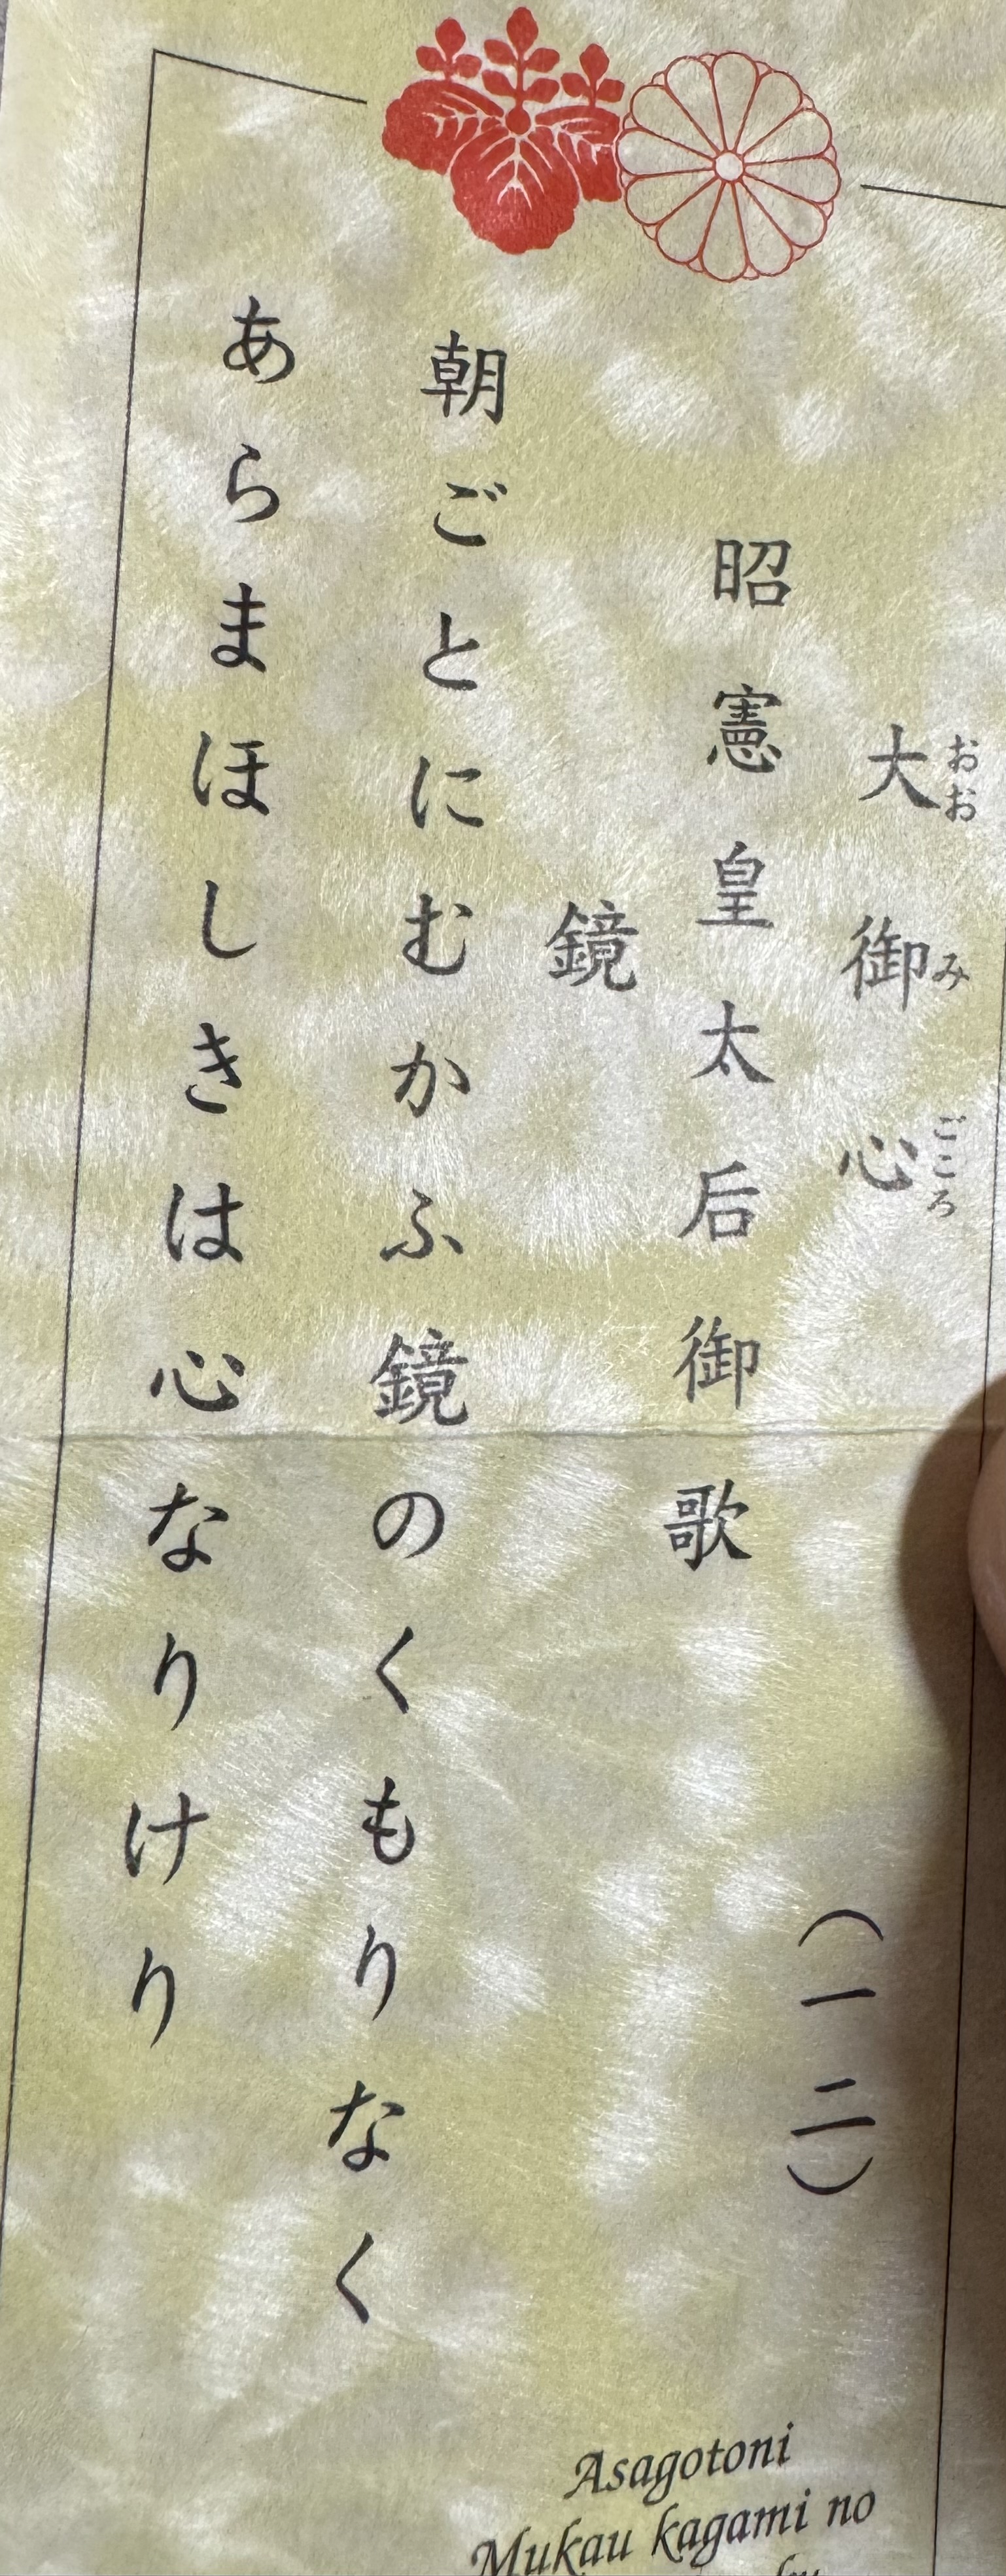 大御心 (一二)
おお み ごころ
昭憲皇太后御歌
鏡
朝ごとにむかふ鏡のくもりなく
あらまほしきは心なりけり
Asagotoni
Mukau kagami no